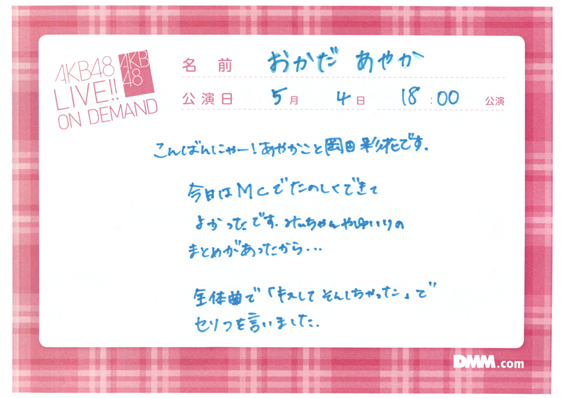 AKB48
LIVE!!
ON DEMAND
AKB
48
名 前 おかだ あやか
公演日 5月 4日 18:00 公演
こんばんにゃー!あやかこと岡田彩花です.
今日はMCでたのしくできて
よかったです.みぃちゃんやゆいりの
まとめがあったから...
全体曲で「キスして そんしちゃった」で
セリフを言いました.
DMM.com